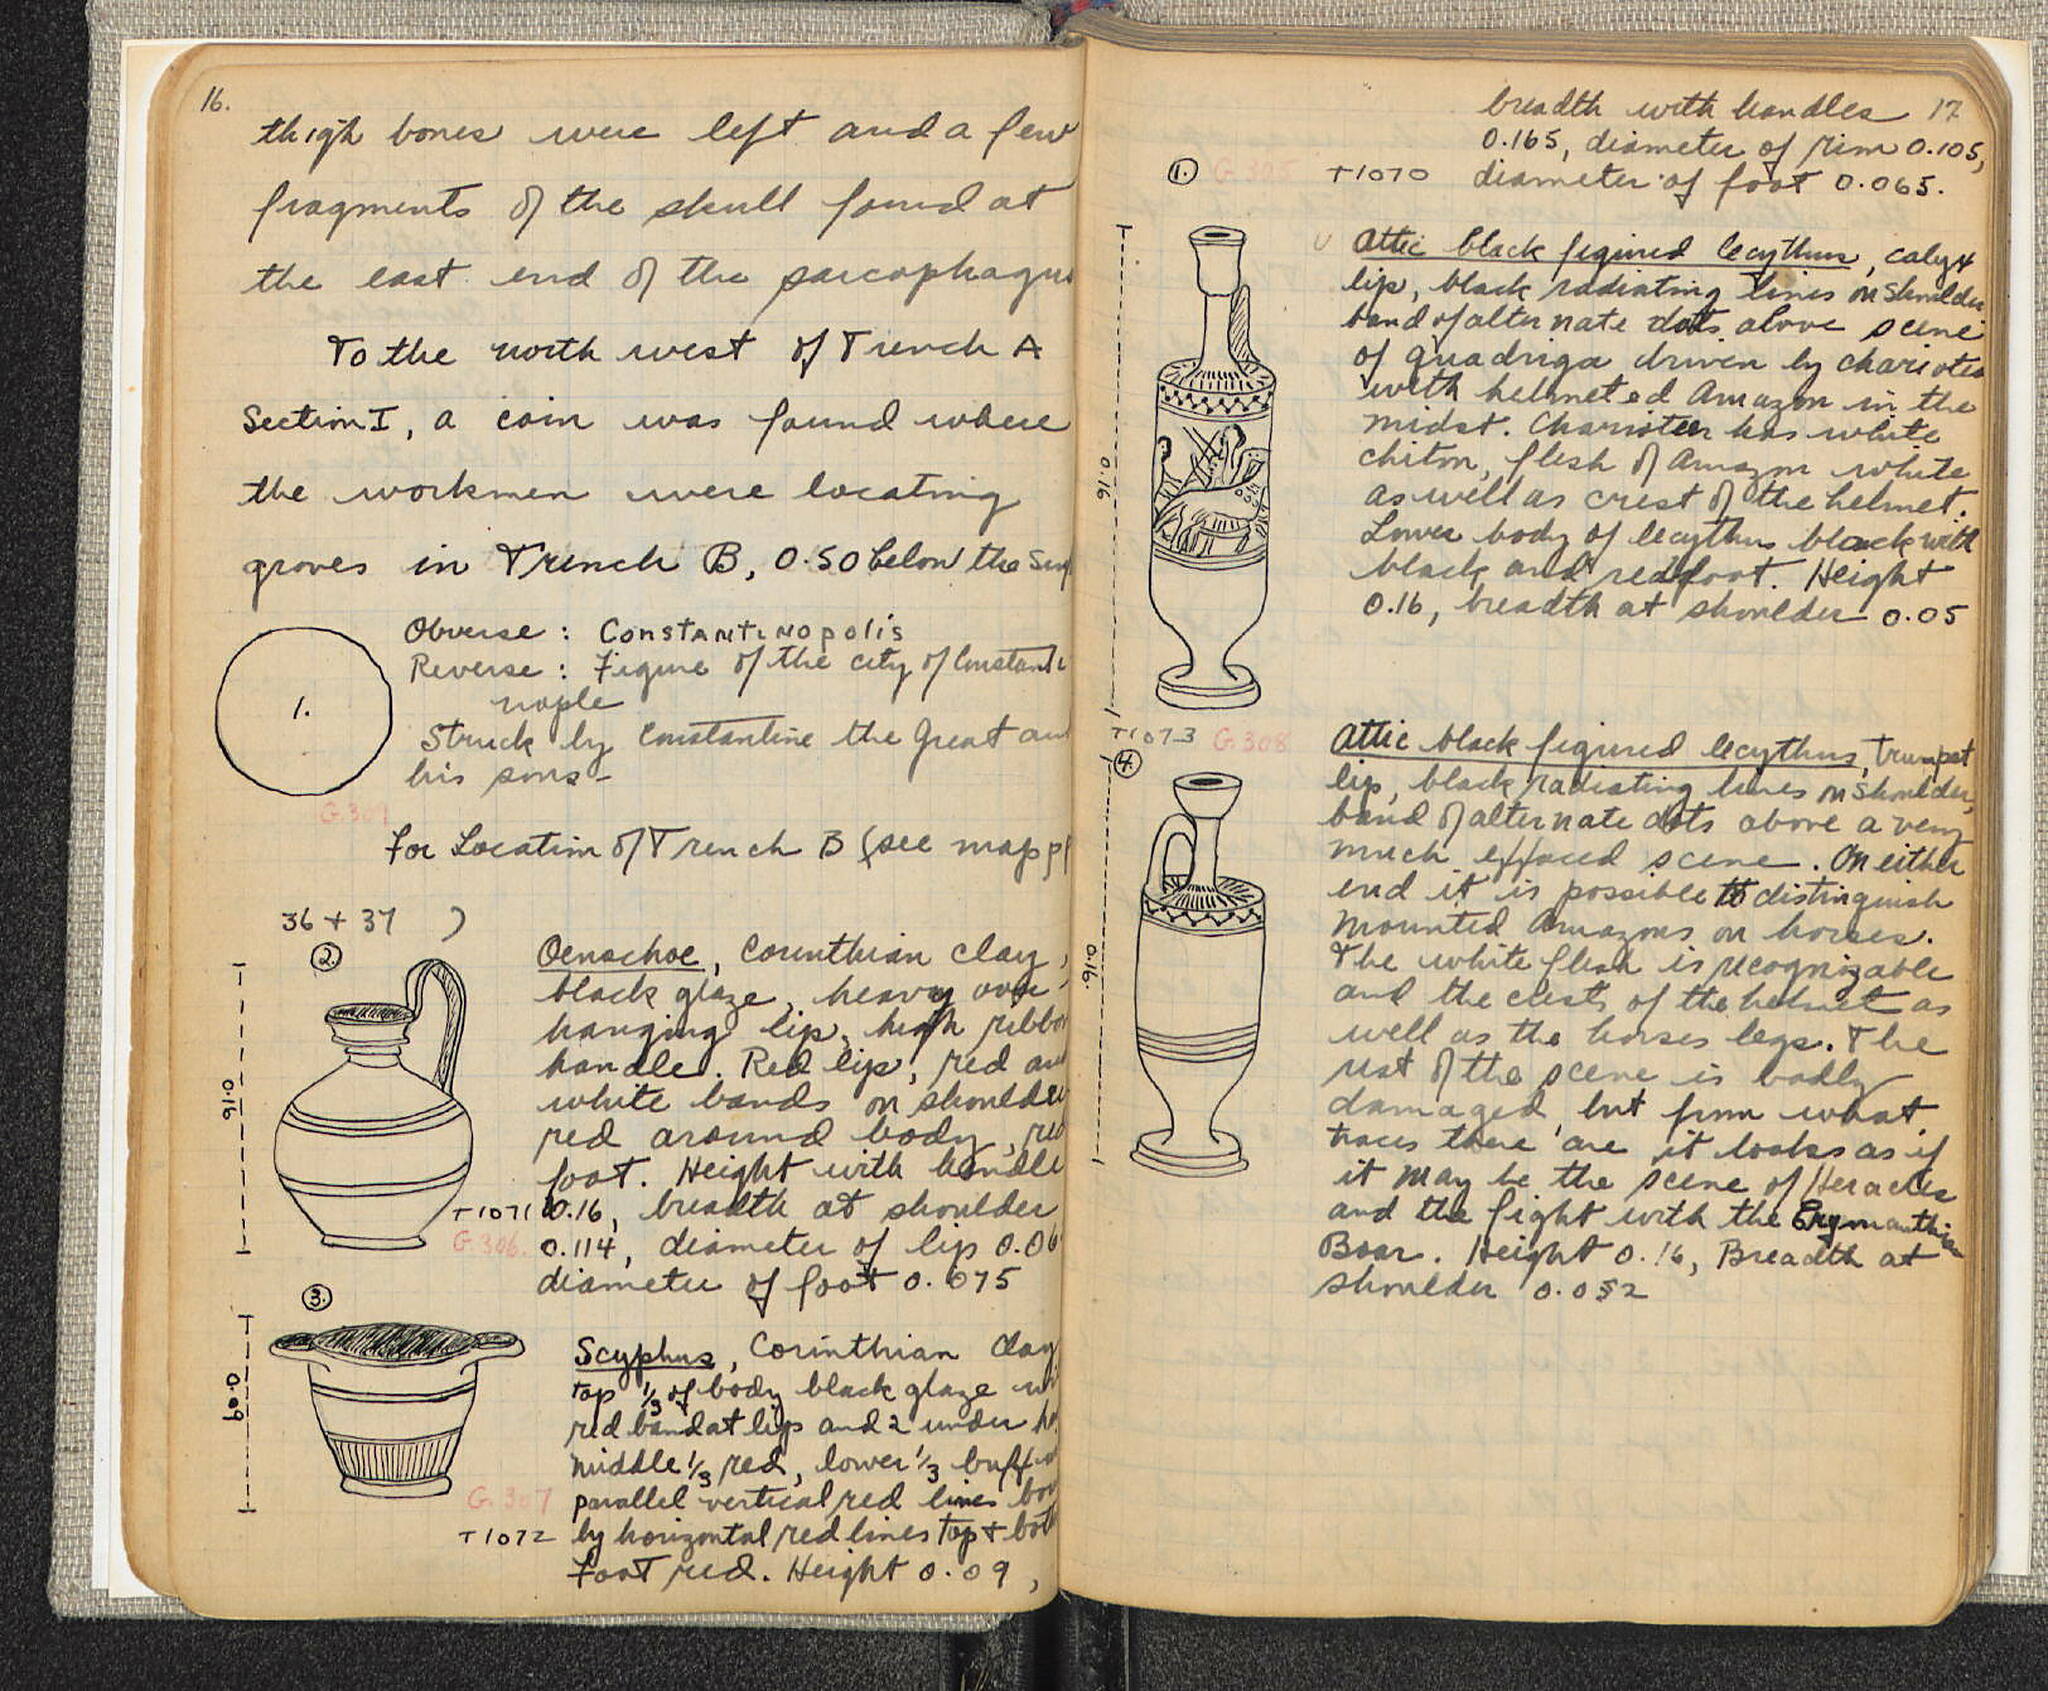 16.
thigh bones were left and a few
fragments of the skull found at
the east end of the sarcophagus
To the north west of Trench A
Section I, a coin was found where
the workmen were locating
groves in Trench B, 0.50 below the
1.
Obverse : Constantinopolis
Reverse : Figure of the city of Constanti
nople
Struck by Constantine the Great
his sons-
For Location of Trench B (see map
36 + 37 )
2.
0.16
Oenochoe, Corinthian clay,
black glaze, heavy over
hanging lip, high ribbon
handle. Red lip, red
white bands on shoulder
red around body, red
foot. Height with handle
T1071 0.16, breadth at shoulder
G.306. 0.114, diameter of lip 0.06
diameter of foot 0.075
3.
0.09
Scyphus, Corinthian Clay
top 1/3 of body black glaze
red band at lip and 2 under
middle 1/3 red, lower 1/3 buff
G.307 parallel vertical red lines
T1072 by horizontal red lines top +
Foot red. Height 0.09,
breadth with handles 17
0.165, diameter of rim 0.105,
1. G 305 T1070 diameter of foot 0.065.
0.16
Attic black figured lecythus, calyx
lip, black radiating lines on shoulder
band of alternate dots above scene
of quadriga driven by chariotee
with helmeted Amazon in the
midst. Charioteer has white
chiton, flesh of Amazon white
as well as crest of the helmet.
Lower body of lecythus black with
black and red foot. Height
0.16, breadth at shoulder 0.05
T1073 G 308
4.
0.16.
Attic black figured lecythus, trumpet
lip, black radiating lines on shoulder,
band of alternate dots above a very
much effaced scene. On either
end it is possible to distinguish
mounted Amazons on horses.
The white flesh is recognizable
and the crests of the helmet as
well as the horses legs. The
rest of the scene is badly
damaged, but from what
traces there are it looks as if
it may be the scene of Heracles
and the fight with the Erymanthian
Boar. Height 0.16, Breadth at
shoulder 0.052